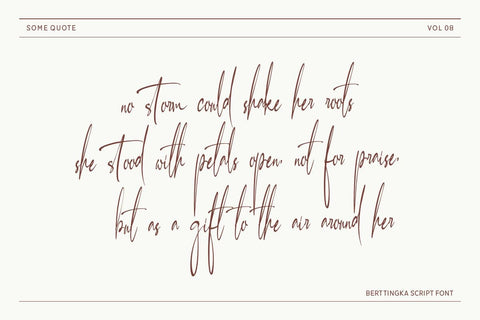 SOME QUOTE
VOL 08
no storm could shake her roots
she stood with petals open, not for praise,
but as a gift to the air around her
BERTTINGKA SCRIPT FONT